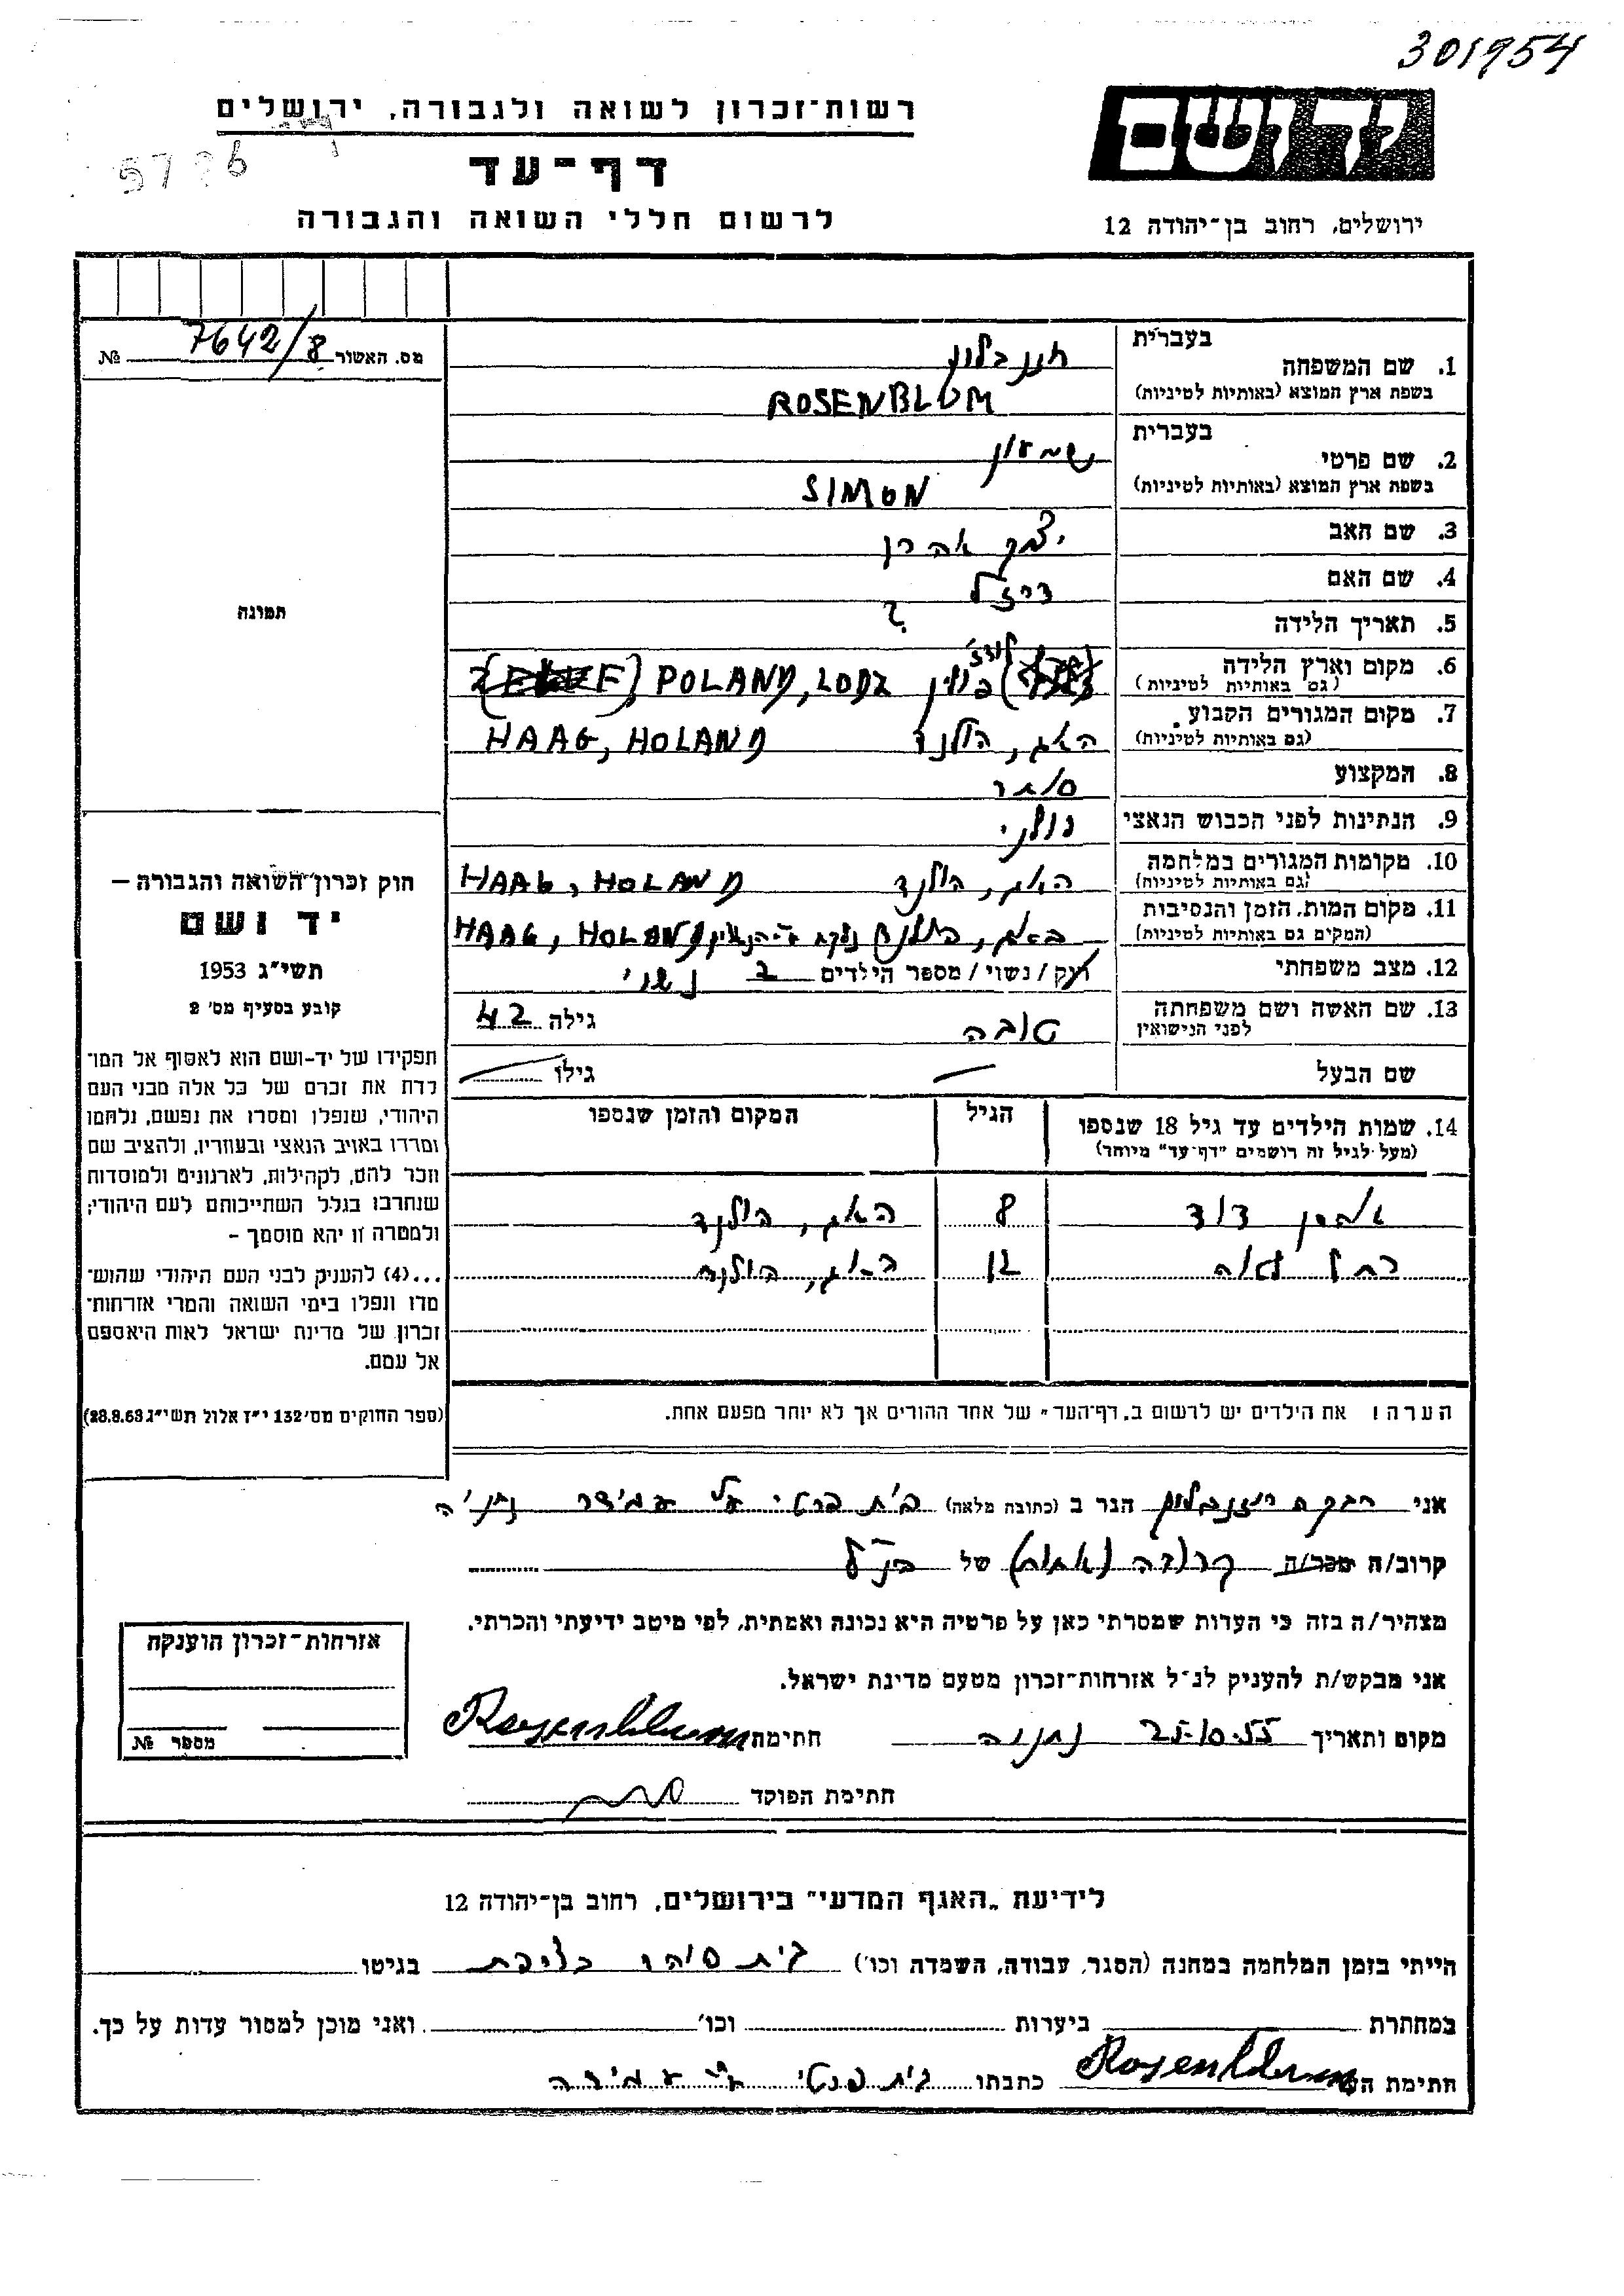 301954
רשות־זכרון לשואה ולגבורה, ירושלים
יד ושם
דף־עד
לרשום חללי השואה והגבורה
ירושלים, רחוב בן־יהודה 12
מס. האשור 7642/8 №
בעברית
1. שם המשפחה
בשפת ארץ המוצא (באותיות לטיניות) ROSENBLUM
בעברית שמעון
2. שם פרטי
בשפת ארץ המוצא (באותיות לטיניות) SIMON
3. שם האב יצחק אהרן
4. שם האם רייזל
5. תאריך הלידה ?
6. מקום וארץ הלידה לודז' פולין POLAND, LODZ
(גם באותיות לטיניות)
7. מקום המגורים הקבוע האג, הולנד HAAG, HOLAND
(גם באותיות לטיניות)
8. המקצוע סוחר
9. הנתינות לפני הכבוש הנאצי פולני
10. מקומות המגורים במלחמה האג, הולנד HAAG, HOLAND
(גם באותיות לטיניות)
11. מקום המות, הזמן והנסיבות האג, הולנד HAAG, HOLAND
(המקום גם באותיות לטיניות)
12. מצב משפחתי רוק / נשוי / מספר הילדים 2 נשוי
13. שם האשה ושם משפחתה טובה גילה 42
לפני הנישואין
שם הבעל — גילו —
14. שמות הילדים עד גיל 18 שנספו הגיל המקום והזמן שנספו
(מעל לגיל זה רושמים "דף־עד" מיוחד)
דוד 8 האג, הולנד
רחל לאה 12 האג, הולנד
הערה: את הילדים יש לרשום ב"דף־העד" של אחד ההורים אך לא יותר מפעם אחת.
תמונה
חוק זכרון־השואה והגבורה —
יד ושם
תשי"ג 1953
קובע בסעיף מס' 2
תפקידו של יד-ושם הוא לאסוף אל המו־
לדת את זכרם של כל אלה מבני העם
היהודי, שנפלו ומסרו את נפשם, נלחמו
ומרדו באויב הנאצי ובעוזריו, ולהציב שם
וזכר להם, לקהילות, לארגונים ולמוסדות
שנחרבו בגלל השתייכותם לעם היהודי;
ולמטרה זו יהא מוסמך –
...(4) להעניק לבני העם היהודי שהוש־
מדו ונפלו בימי השואה והמרי אזרחות־
זכרון של מדינת ישראל לאות היאספם
אל עמם.
(ספר החוקים מס' 132 י"ז אלול תשי"ג 28.8.53)
אני רבקה רוזנבלום הגר ב (כתובת מלאה) נתניה
קרוב/ה מכר/ה קרובה (אחות) של הנ"ל
מצהיר/ה בזה כי העדות שמסרתי כאן על פרטיה היא נכונה ואמתית, לפי מיטב ידיעתי והכרתי.
אני מבקש/ת להעניק לנ"ל אזרחות־זכרון מטעם מדינת ישראל.
מקום ותאריך 25.10.55 נתניה חתימת Rosenblum
חתימת הפוקד
אזרחות־זכרון הוענקה
מספר №
לידיעת "האגף המדעי" בירושלים, רחוב בן־יהודה 12
הייתי בזמן המלחמה במחנה (הסגר, עבודה, השמדה וכו') בגיטו
במחתרת ביערות וכו' ואני מוכן למסור עדות על כך.
חתימת Rosenblum כתבתו